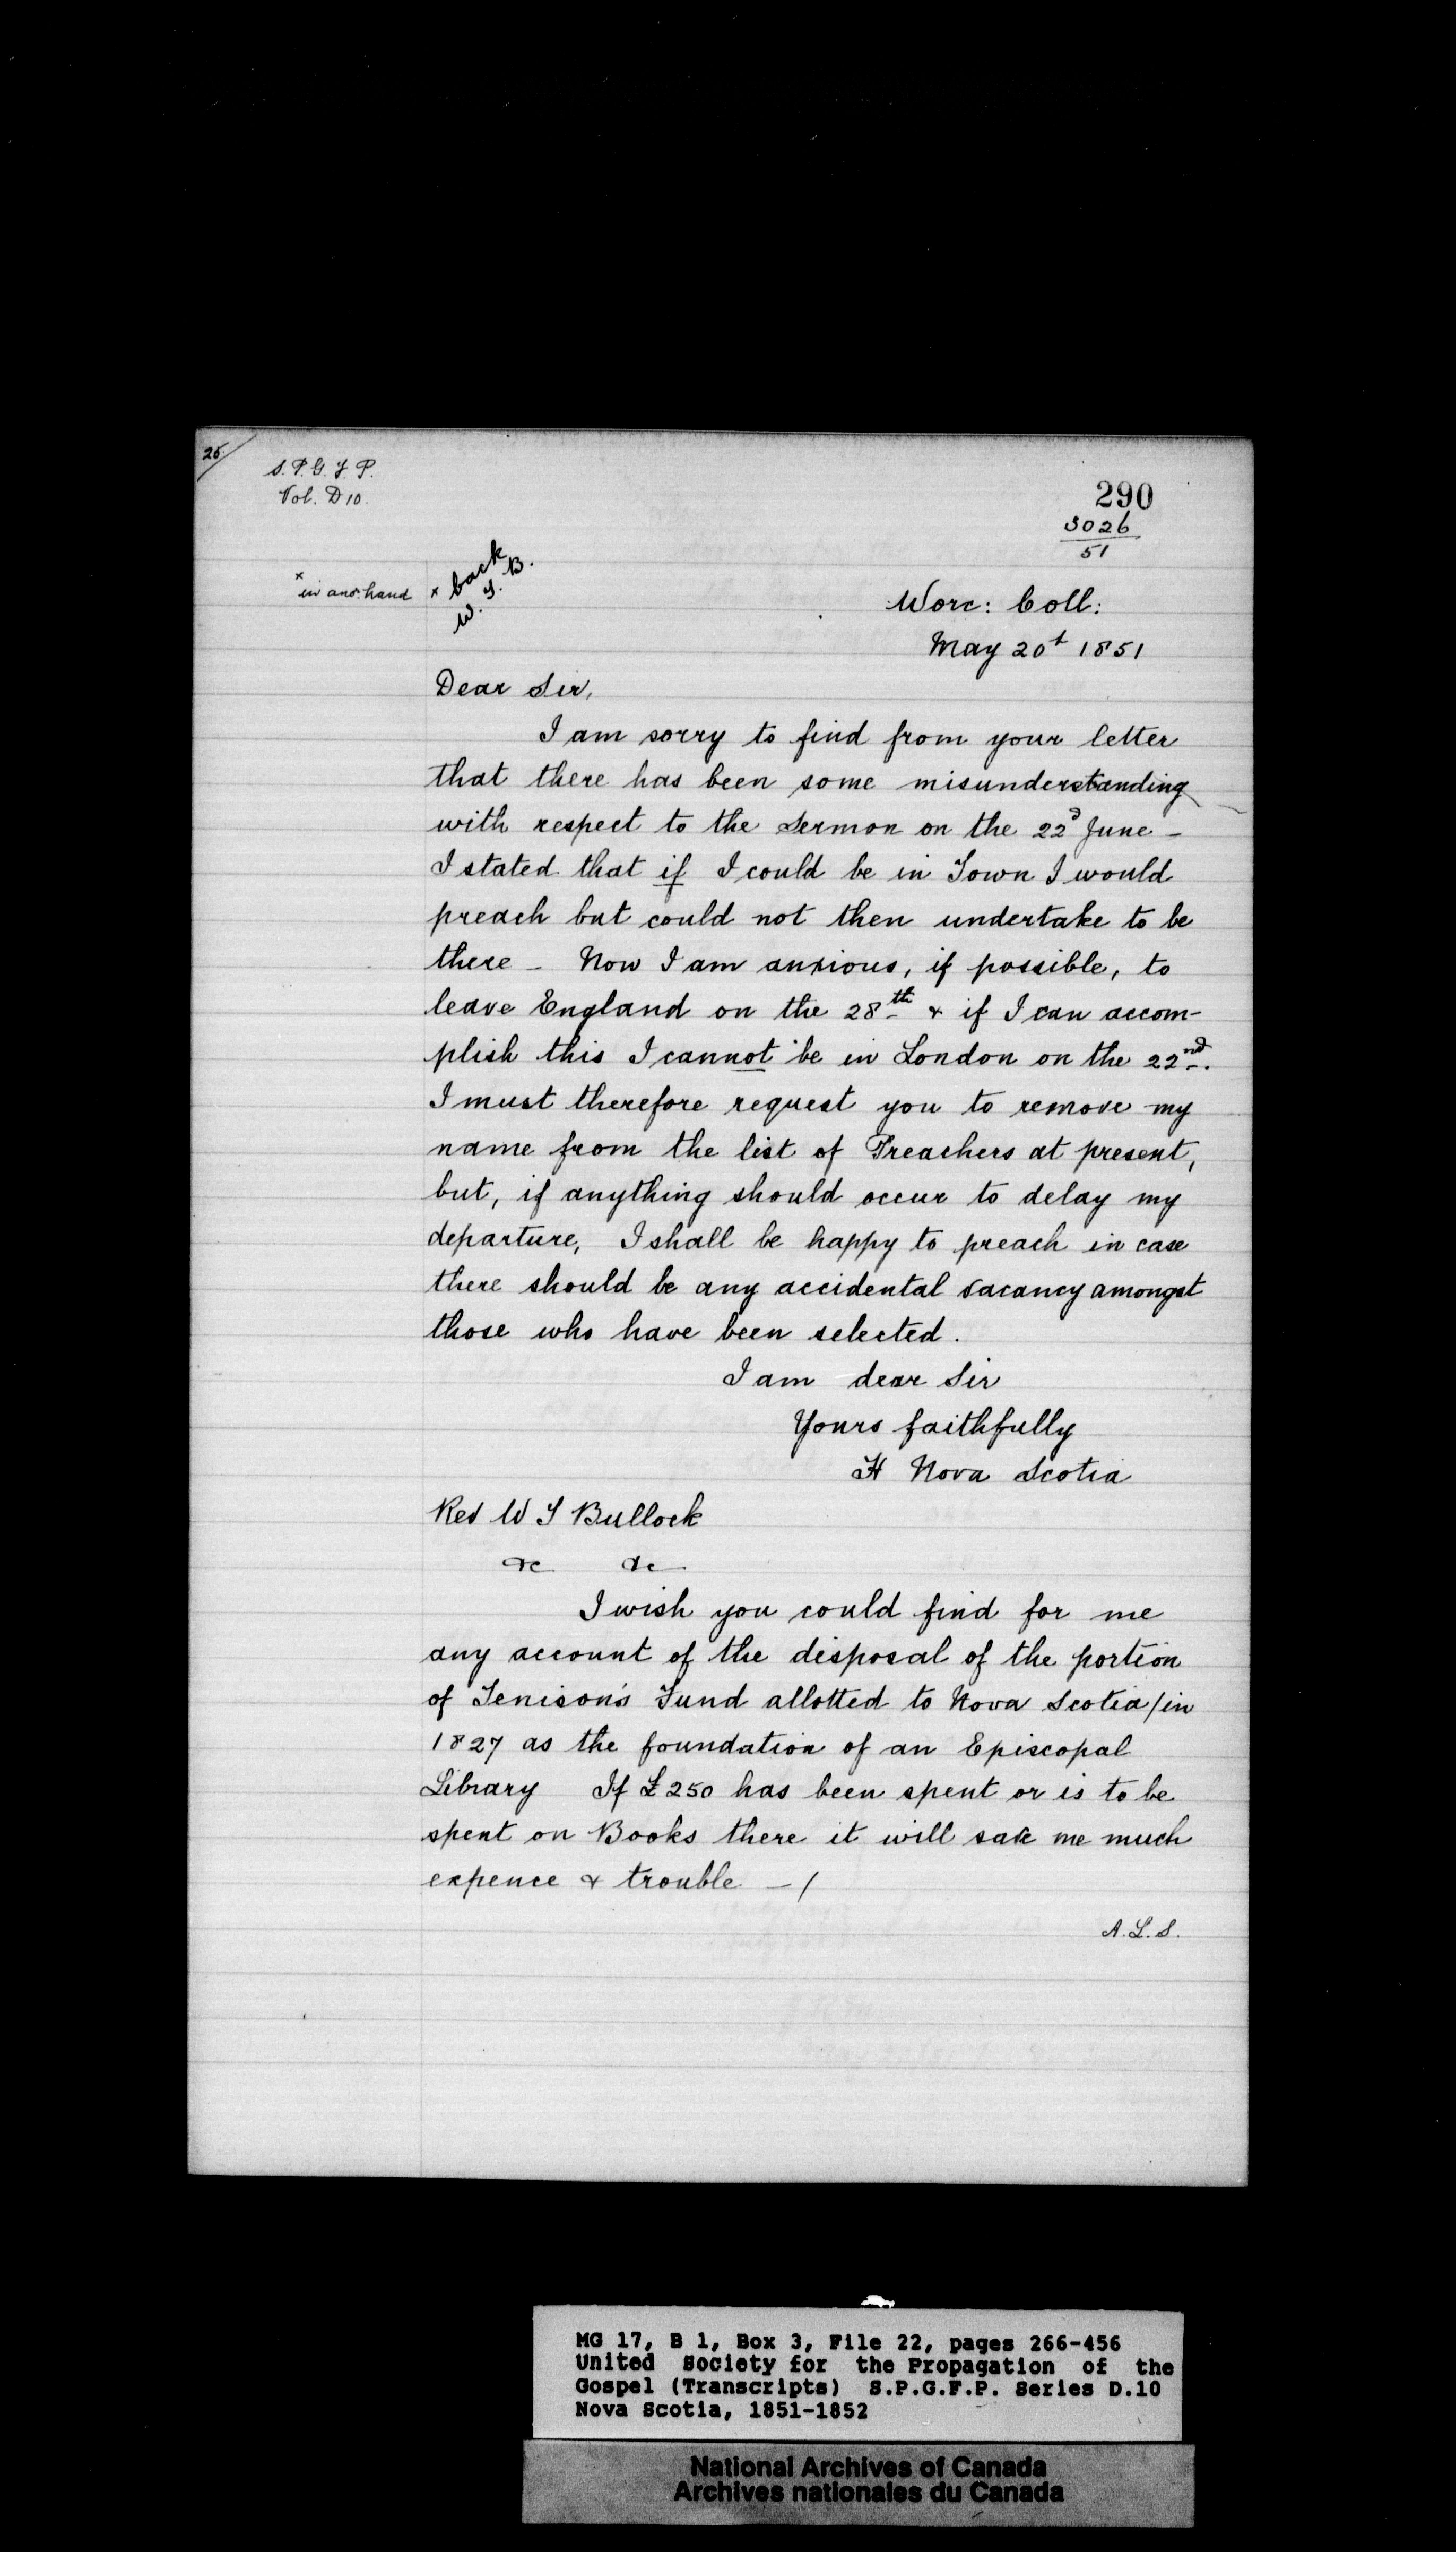 25
S.P.G.F.P.
Vol. D10.
290
3026
51
x in ano: hand
x back
W. T. B.
Worc: Coll:
May 20t 1851
Dear Sir,
I am sorry to find from your letter
that there has been some misunderstanding
with respect to the Sermon on the 22d June –
I stated that if I could be in Town I would
preach but could not then undertake to be
there – Now I am anxious, if possible, to
leave England on the 28th & if I can accom-
plish this I cannot be in London on the 22nd.
I must therefore request you to remove my
name from the list of Preachers at present,
but, if anything should occur to delay my
departure, I shall be happy to preach in case
there should be any accidental vacancy amongst
those who have been selected.
I am dear Sir
Yours faithfully
H Nova Scotia
Rev W T Bullock
&c &c
I wish you could find for me
any account of the disposal of the portion
of Tenison's Fund allotted to Nova Scotia/in
1827 as the foundation of an Episcopal
Library If £250 has been spent or is to be
spent on Books there it will save me much
expence & trouble –/
A.L.S.
MG 17, B 1, Box 3, File 22, pages 266-456
United Society for the Propagation of the
Gospel (Transcripts) S.P.G.F.P. Series D.10
Nova Scotia, 1851-1852
National Archives of Canada
Archives nationales du Canada